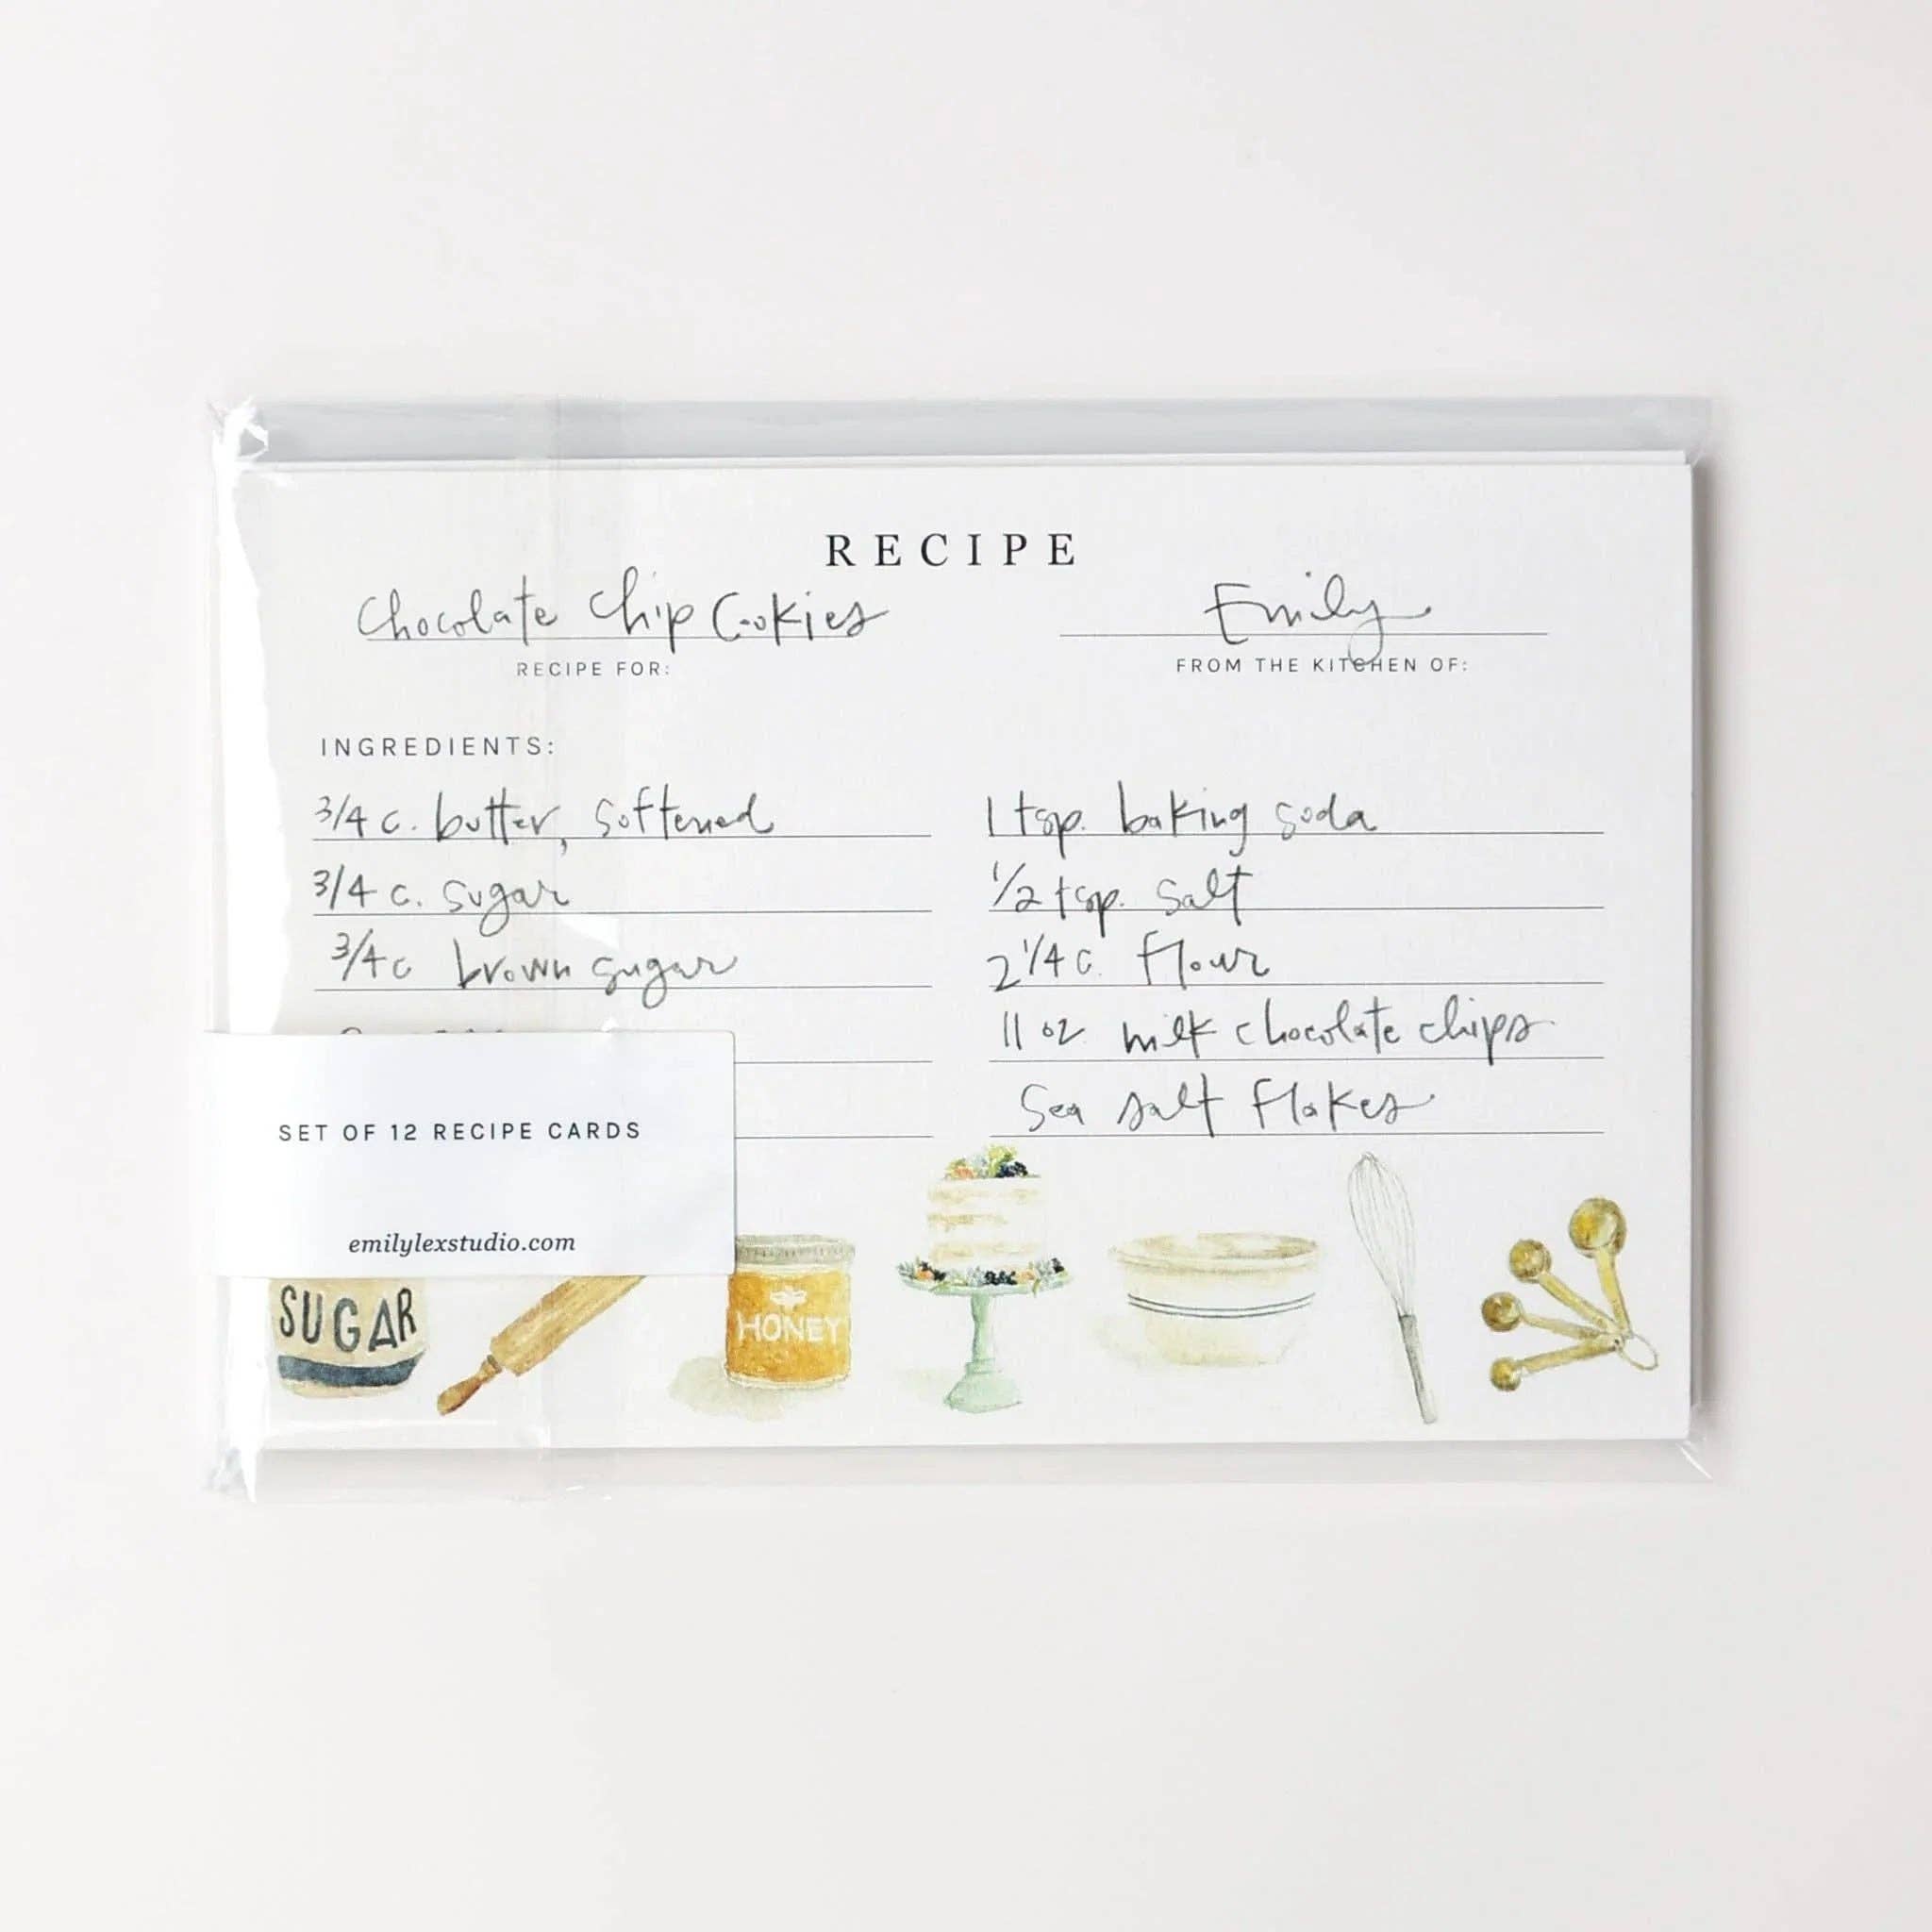 RECIPE
Chocolate Chip Cookies
RECIPE FOR:
Emily
FROM THE KITCHEN OF:
INGREDIENTS:
3/4 c. butter, softened
3/4 c. sugar
3/4 c brown sugar
1 tsp. baking soda
1/2 tsp. salt
2 1/4 c. flour
11 oz milk chocolate chips
Sea salt flakes
SET OF 12 RECIPE CARDS
emilylexstudio.com
SUGAR
HONEY